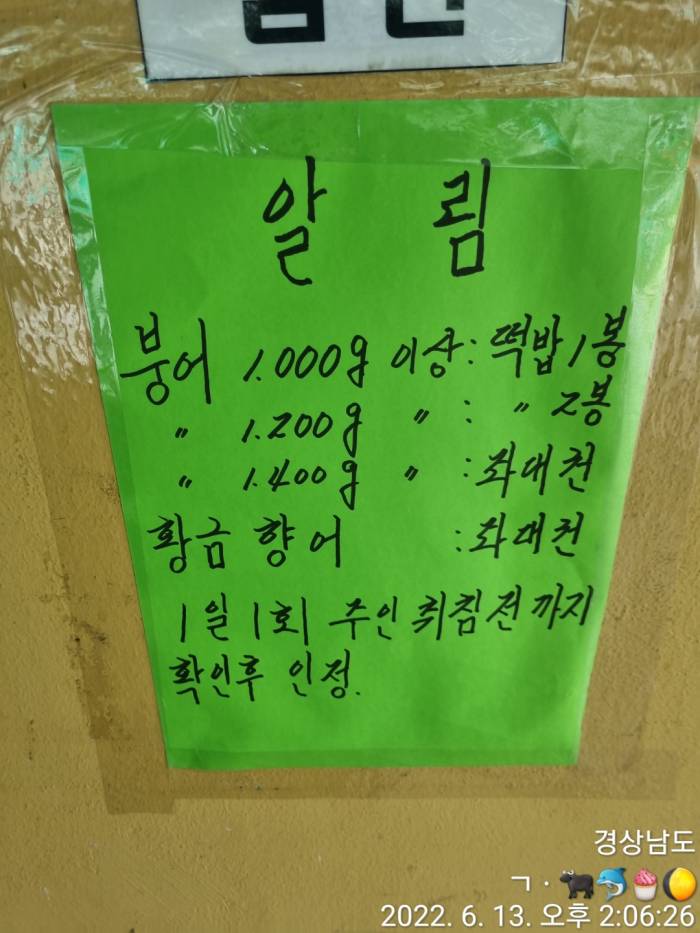 알 림
붕어 1.000g 이상 : 떡밥 1봉
〃 1.200g 〃 : 〃 2봉
〃 1.400g 〃 : 좌대권
황금 향어 : 좌대권
1일 1회 주인 취침전까지
확인후 인정.
경상남도
ㄱ · 🐃🐬🧁🌔
2022. 6. 13. 오후 2:06:26